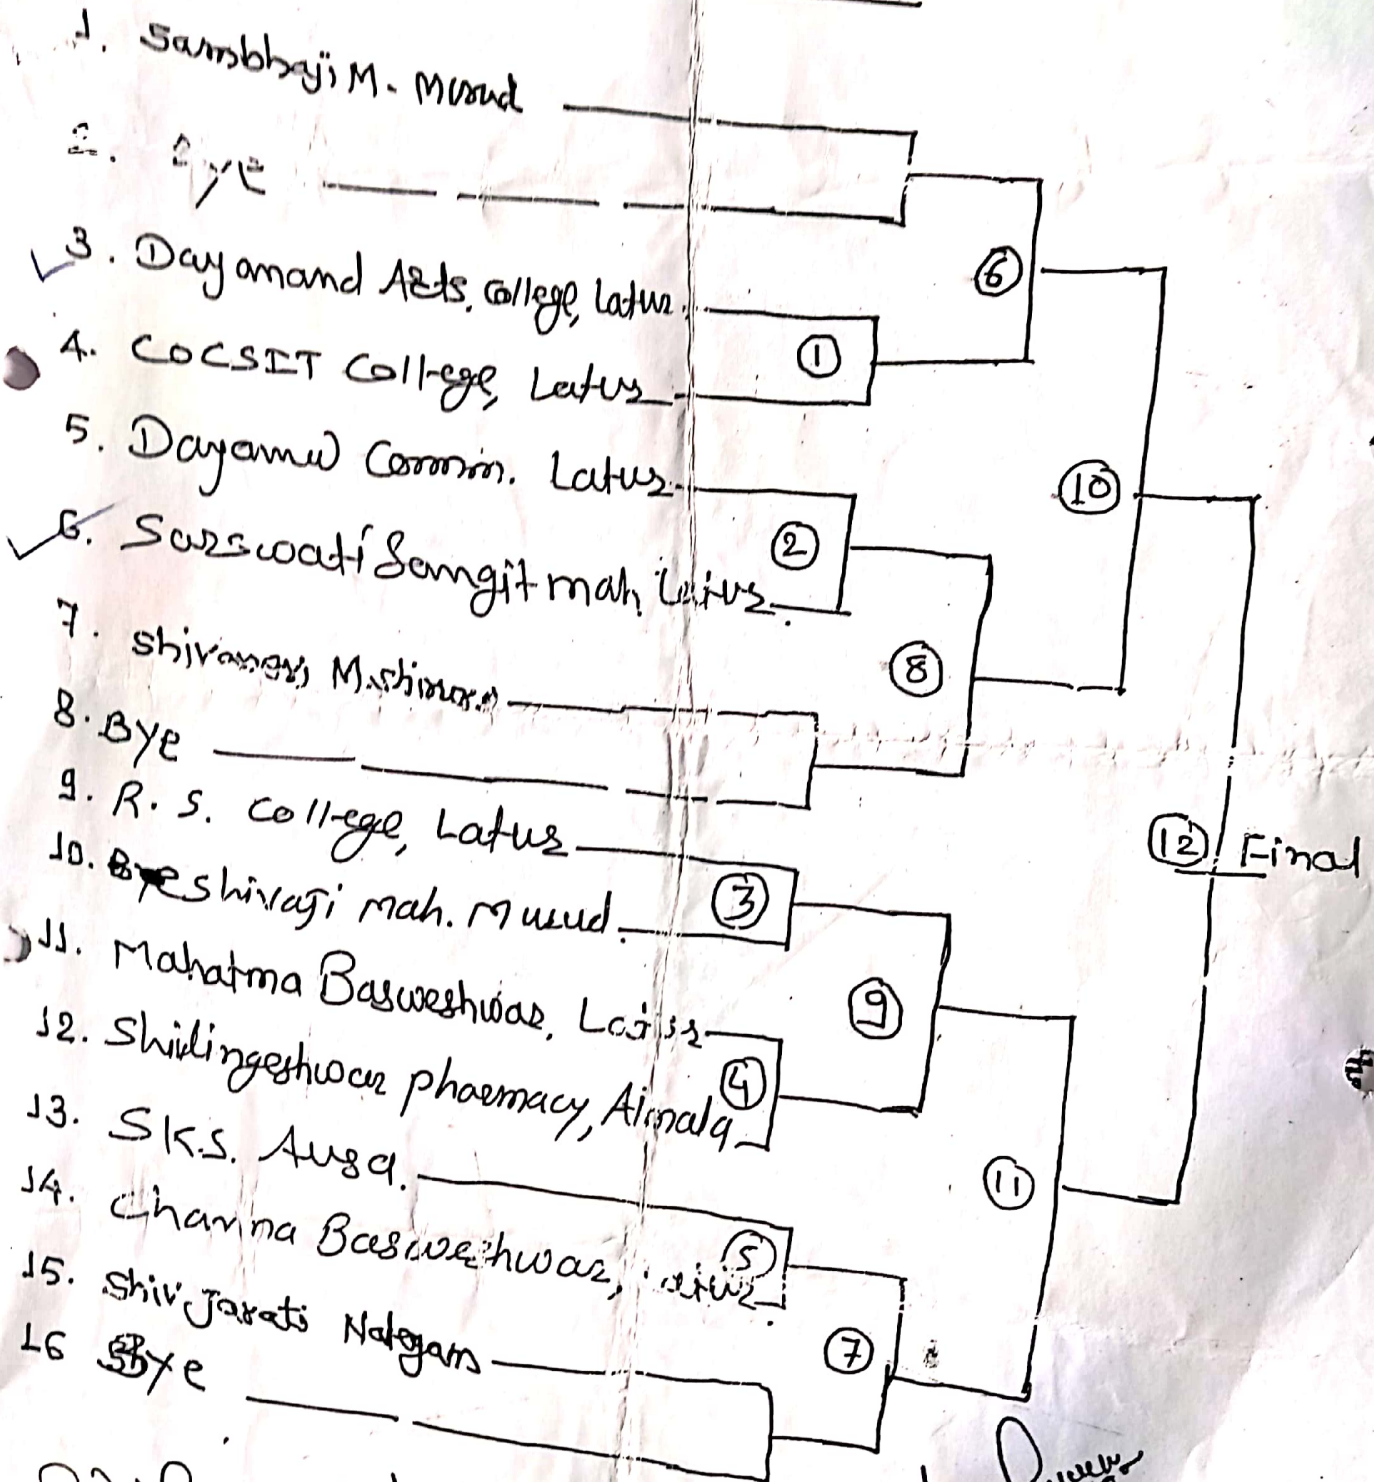 1. Sambhaji M. Murud
2. Bye
3. Dayanand Arts, College, Latur
6
4. COCSIT College, Latur
1
5. Dayanand Comm. Latur
10
6. Sarswati Sangit mah, Latur
2
7. Shivaneri M. Shirur
8
8. Bye
9. R. S. College, Latur
12 Final
10. Bye Shivaji mah. Murud
3
11. Mahatma Basweshwar, Latur
9
12. Shivlingeshwar pharmacy, Almala
4
13. S.K.S. Ausa.
11
14. Channa Basweshwar, Latur
5
15. Shiv Jarati Nalegam
7
16 Bye